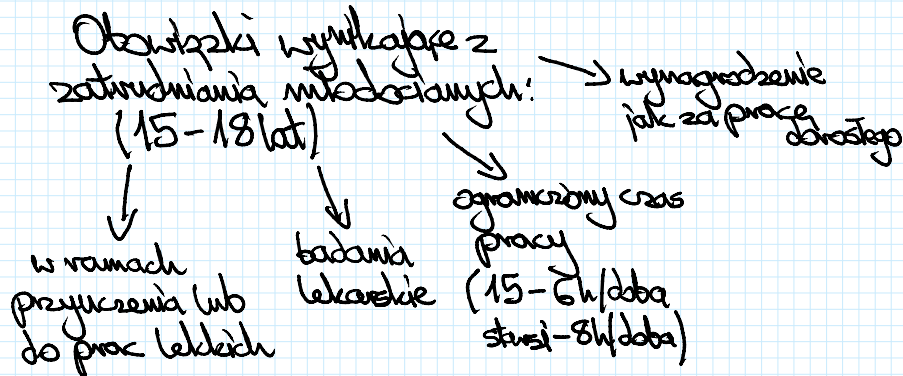 Obowiązki wynikające z
zatrudniania młodocianych:
(15-18 lat)
→ wynagrodzenie
jak za pracę
dorosłego
w ramach
przyuczenia lub
do prac lekkich
badania
lekarskie
ograniczony czas
pracy
(15-6h/doba
starsi-8h/doba)